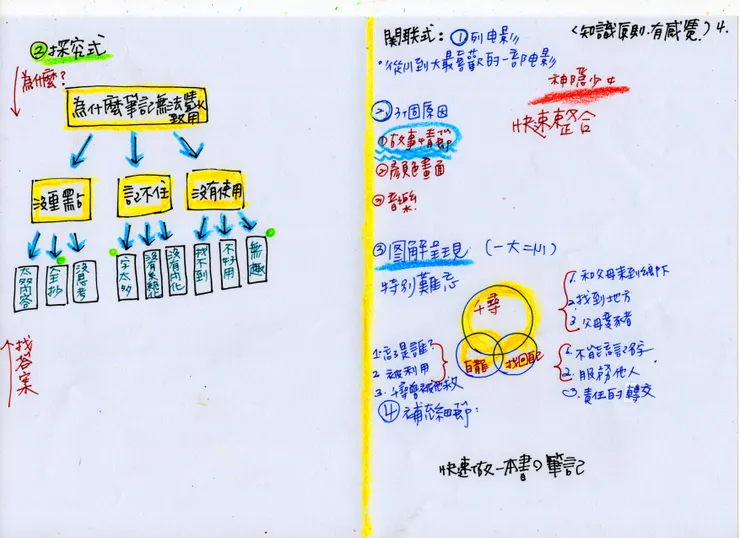 ②探究式
為什麼?
為什麼筆記無法學以
致用
沒重點
記不住
沒有使用
太多內容
全抄
沒思考
字太多
沒有內化
找不到
不好用
無趣
找答案
関联式:①列电影
(知識原則.有感覺)4.
·從小到大最喜歡的一部电影
神隱少女
②3個原因
快速東整合
①故事情節
②顏色畫面
③音樂
③图解呈現 (一大二小)
特別難忘
千尋
白龍
找回自己
1.和父母來到
2.找到地方
3.父母變豬
1.忘了是誰?
2.被利用
1.不能忘記名字
2.服務他人
3.責任的轉交
④補充細節:
快速做一本書の筆記